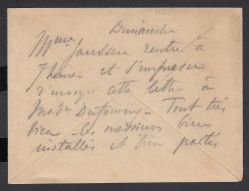 Dimanche
Mme Janssen rentre à
7 heures et s'empresse
d'envoyer cette lettre à
Made - Tout très
bien - les messieurs bien
installés et bien partis